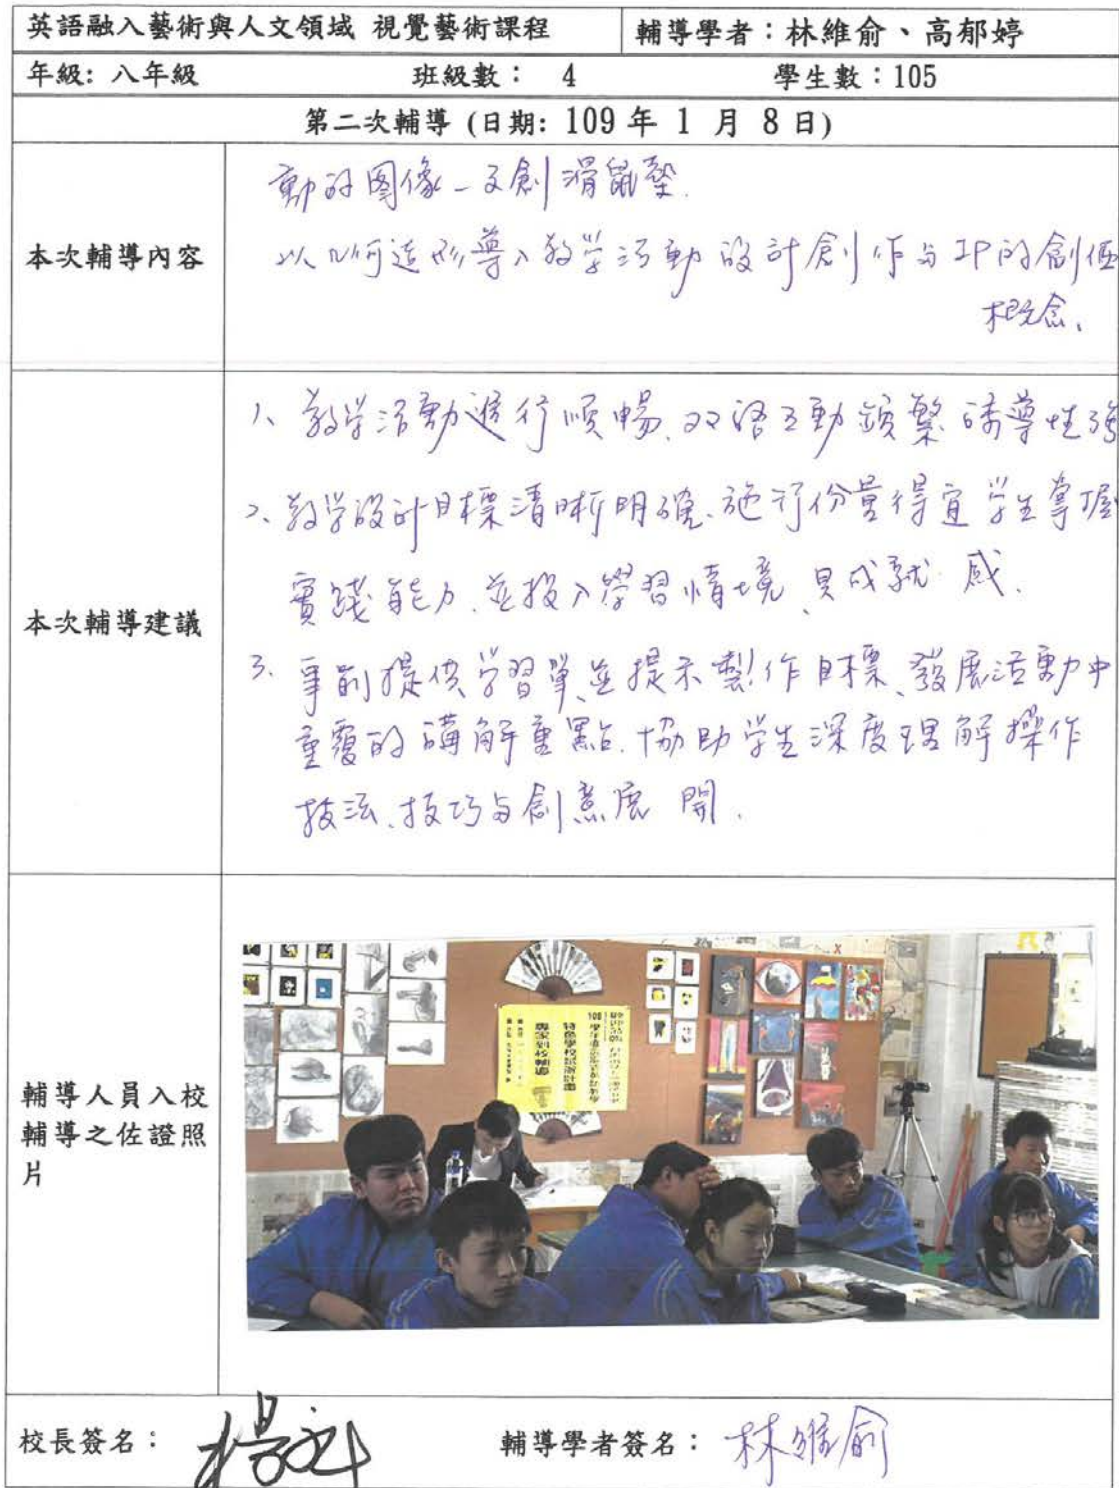 英語融入藝術與人文領域 視覺藝術課程
輔導學者：林維俞、高郁婷
年級: 八年級 班級數： 4 學生數：105
第二次輔導 (日期: 109 年 1 月 8 日)
本次輔導內容
動的图像－文創滑鼠墊.
以几何造形導入教学活動設計創作与IP的創価
概念、
本次輔導建議
1、教学活動進行順暢、双语互動頻繁誘導性強
2、教学設計目標清晰明確、施行份量得宜 学生掌握
實踐能力、並投入學習情境、具成就感.
3. 事前提供学習單、並提示製作目標、發展活動中
重覆的講解重點、協助学生深度理解操作
技法、技巧与創意展開.
輔導人員入校
輔導之佐證照
片
108
專家到校輔導
校長簽名：
輔導學者簽名： 林維俞